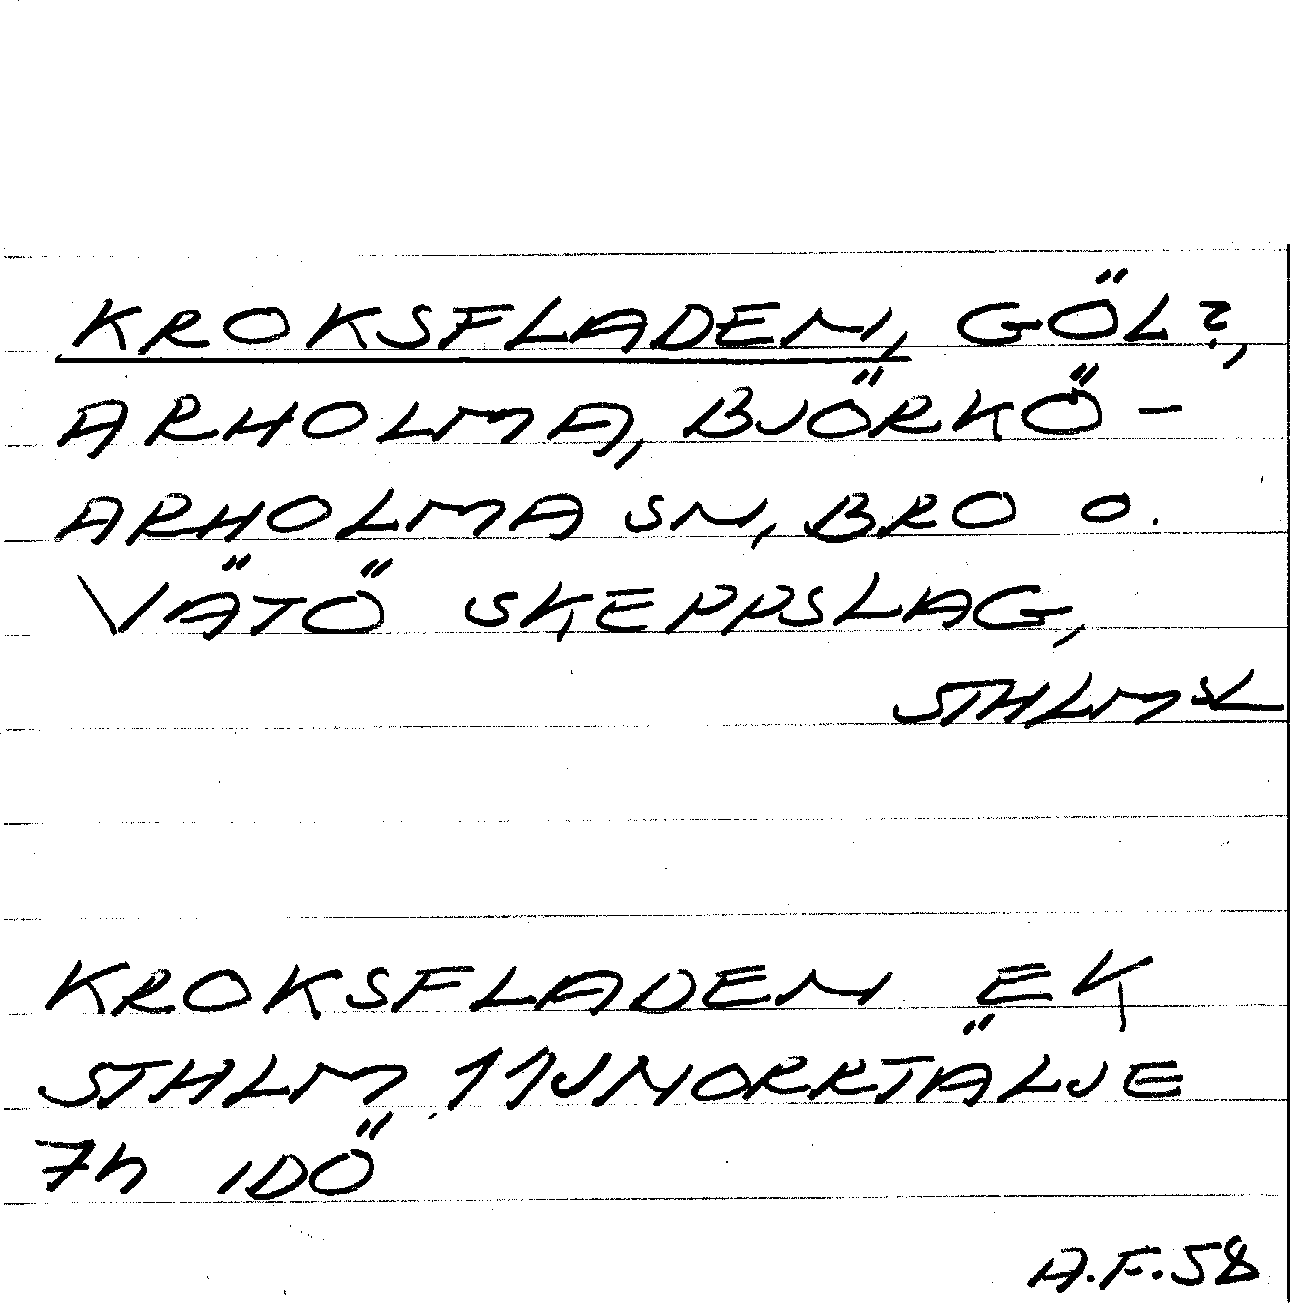 KROKSFLADEN, GÖL?,
ARHOLMA, BJÖRKÖ-
ARHOLMA SN, BRO O.
VÄTÖ SKEPPSLAG,
STHLMSL
KROKSFLADEN EK
STHLM 11J NORRTÄLJE
7h IDÖ
A.F.58